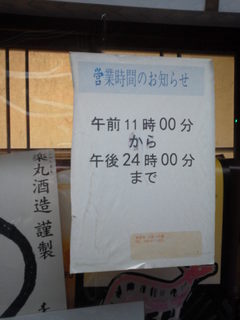 営業時間のお知らせ
午前11時00分
から
午後24時00分
まで
丸酒造謹製